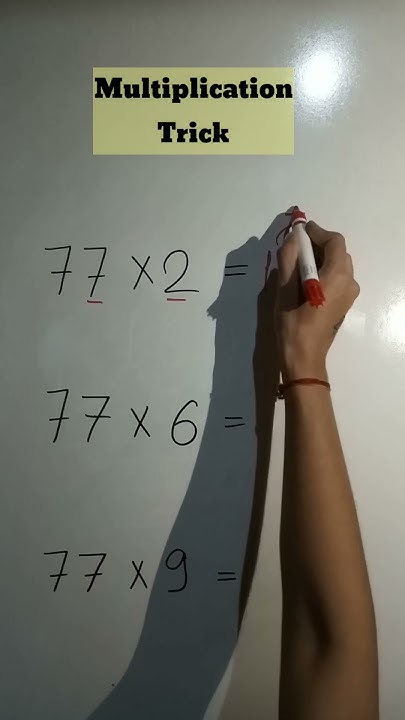 Multiplication
Trick
77 × 2 = 1
77 × 6 =
77 × 9 =